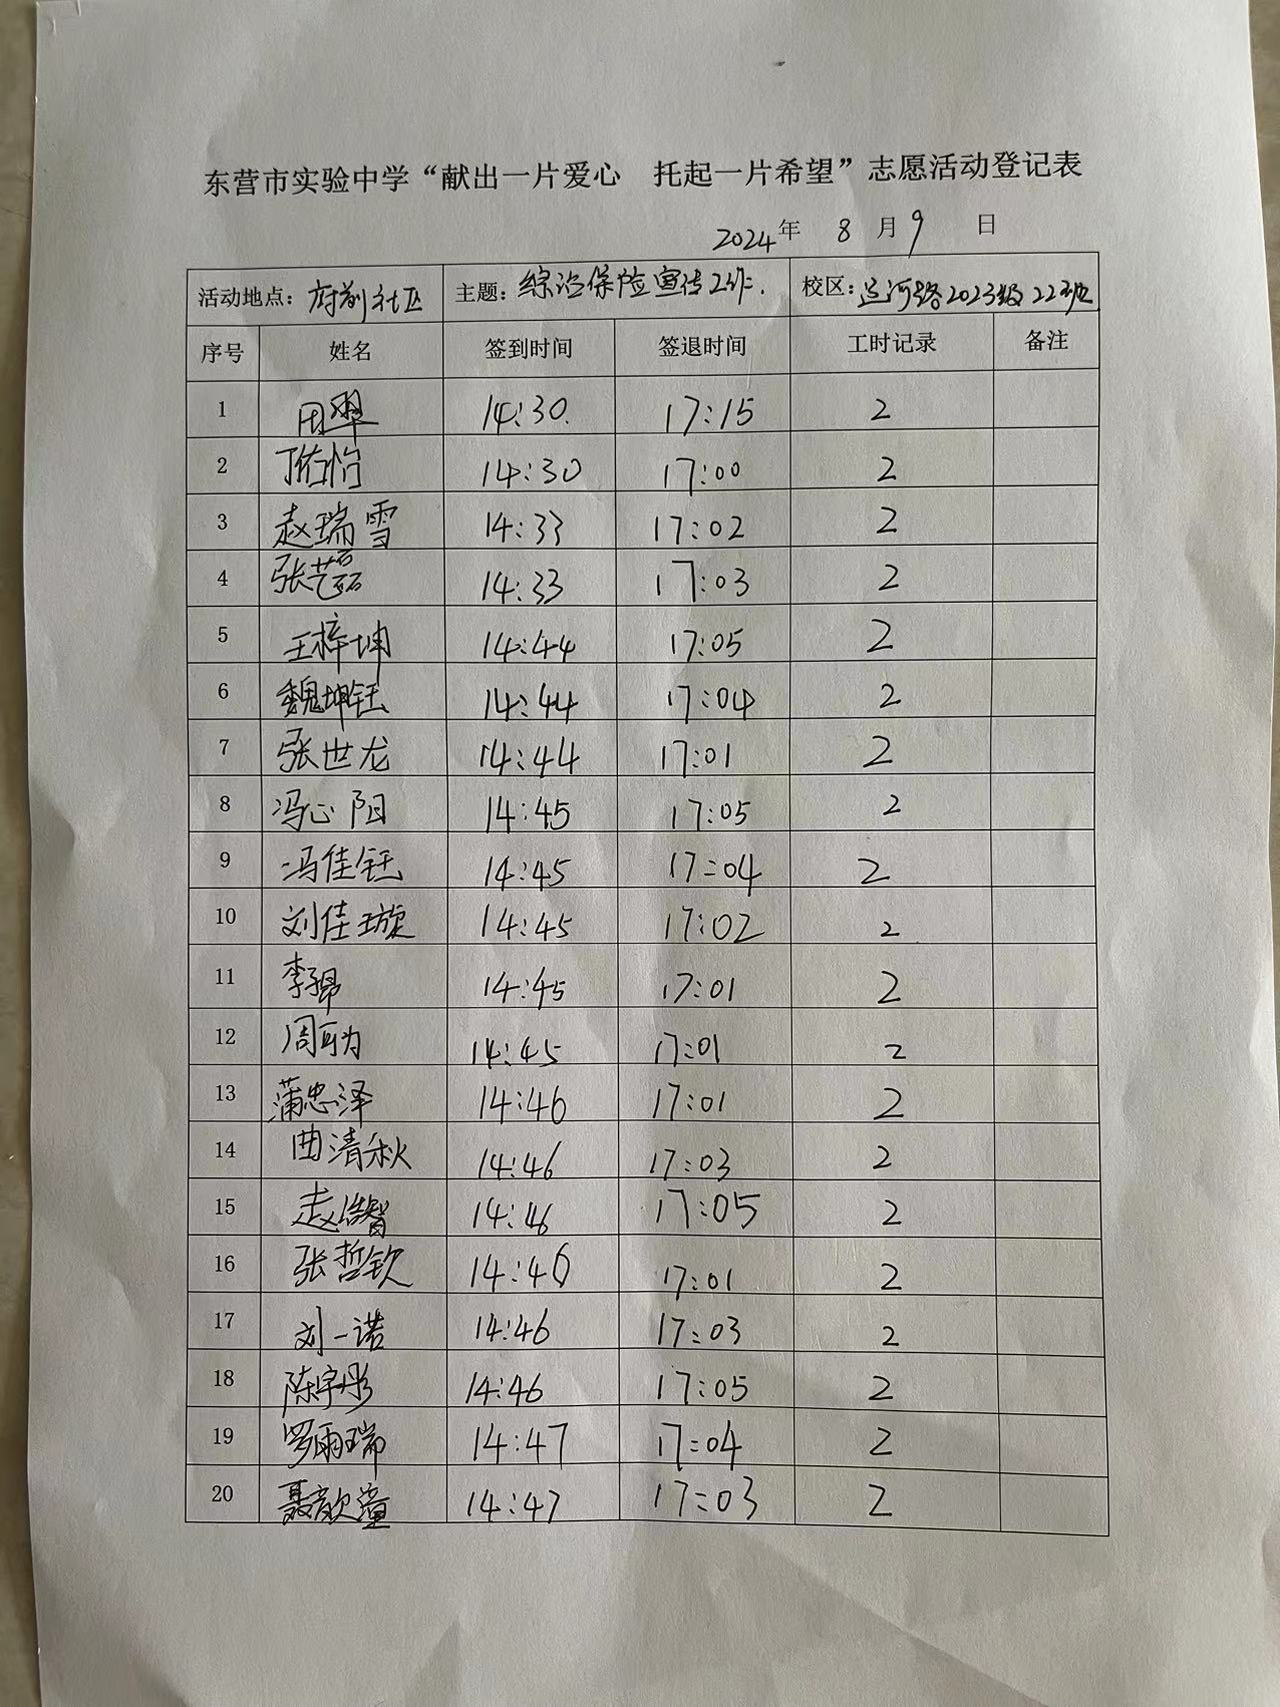 东营市实验中学“献出一片爱心 托起一片希望”志愿活动登记表
2024年 8 月 9 日
活动地点：府前社区 主题：综治保险宣传工作. 校区：运河路2023级22班
序号 姓名 签到时间 签退时间 工时记录 备注
1 田翠 14:30. 17:15 2
2 丁佑怡 14:30 17:00 2
3 赵瑞雪 14:33 17:02 2
4 张艺磊 14:33 17:03 2
5 王梓坤 14:44 17:05 2
6 魏坤钰 14:44 17:04 2
7 张世龙 14:44 17:01 2
8 冯心阳 14:45 17:05 2
9 冯佳钰 14:45 17:04 2
10 刘佳璇 14:45 17:02 2
11 李昂 14:45 17:01 2
12 周可为 14:45 17:01 2
13 蒲忠泽 14:46 17:01 2
14 曲清秋 14:46 17:03 2
15 赵皓智 14:46 17:05 2
16 张哲钦 14:46 17:01 2
17 刘一诺 14:46 17:03 2
18 陈宇彤 14:46 17:05 2
19 罗雨瑞 14:47 17:04 2
20 聂歆潼 14:47 17:03 2